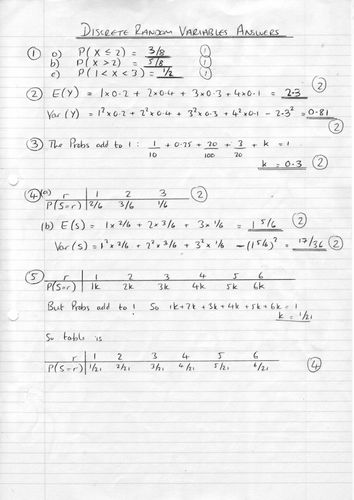 DISCRETE RANDOM VARIABLES ANSWERS
① a) P(X ≤ 2) = 3/8 ①
b) P(X > 2) = 5/8 ①
c) P(1 < X < 3) = 1/2 ①
② E(Y) = 1×0.2 + 2×0.4 + 3×0.3 + 4×0.1 = 2.3 ②
Var(Y) = 1²×0.2 + 2²×0.4 + 3²×0.3 + 4²×0.1 - 2.3² = 0.81 ②
③ The Probs add to 1: 1/10 + 0.25 + 20/100 + 3/20 + k = 1
k = 0.3 ②
④(a) r 1 2 3 ②
P(S=r) 2/6 3/6 1/6
(b) E(S) = 1×2/6 + 2×3/6 + 3×1/6 = 1 5/6 ②
Var(S) = 1²×2/6 + 2²×3/6 + 3²×1/6 - (1 5/6)² = 17/36 ②
⑤ r 1 2 3 4 5 6
P(S=r) 1k 2k 3k 4k 5k 6k
But Probs add to 1! So 1k+2k+3k+4k+5k+6k = 1
k = 1/21
So table is
r 1 2 3 4 5 6
P(S=r) 1/21 2/21 3/21 4/21 5/21 6/21 ④